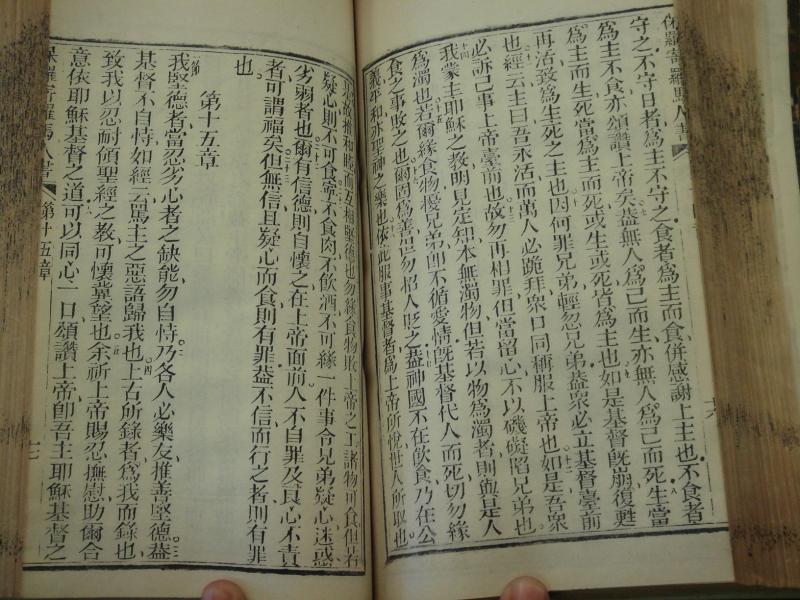 保羅寄羅馬人書
守之不守日者為主不守之食者為主而食併感謝上主也不食者
為主不食亦頌讚上帝矣蓋無人為己而生亦無人為己而死生當
為主而生死當為主而死或生或死皆為主也如是基督旣崩復甦
再活致為生死之主也因何罪兄弟輕忽兄弟蓋眾必立基督臺前
也經云主曰吾永活而萬人必跪拜眾口同稱服上帝也如是吾眾
必訴己事上帝臺前也故勿再相罪但當留心不以礙礙陷兄弟也
我蒙主耶穌之教明見定知本無濁物但若以物為濁者則與是人
為濁也若爾緣食物擾兄弟卽不循愛情旣基督代人而死切勿緣
食之事敗之也爾固為善當勿招人貶之蓋神國不在飲食乃在公
義平和亦聖神之樂也依此服事基督者為上帝所悅世人所取也
是故推和睦而互相堅德也勿緣食物敗上帝之工諸物可食但若
疑心則不可食寧不食肉不飲酒不可緣一件事令兄弟疑心迷惑
劣弱者也爾有信德則自懷之在上帝面前人不自罪及良心不責
者可謂福矣但無信且疑心而食則有罪蓋不信而行之者則有罪
也
第十五章
我堅德者當忍劣心者之缺能勿自恃乃各人必樂友推善堅德蓋
基督不自恃如經云罵主之惡語歸我也上古所錄者為我而錄也
致我以忍耐領聖經之教可懷冀望也余祈上帝賜忍撫慰助爾合
意依耶穌基督之道可以同心一口頌讚上帝卽吾主耶穌基督之
保羅寄羅馬人書 第十五章